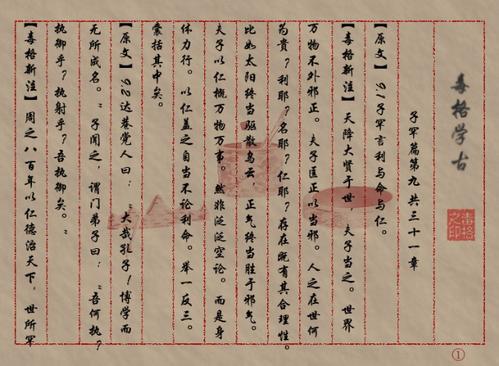 毒格学古
子罕篇第九共三十一章
【原文】9.1子罕言利与命与仁。
【毒格新注】天降大贤于世，夫子当之。世界
万物不外邪正。夫子匡正以当邪。人之在世何
为贵？利耶？名耶？仁耶？存在既有其合理性。
比如太阳终当驱散乌云，正气终当胜于邪气。
夫子以仁概万物万事。然非泛泛空论。而是身
体力行。以仁盖之自当不论利命。举一反三。
囊括其中矣。
【原文】9.2达巷党人曰：“大哉孔子！博学而
无所成名。”子闻之，谓门弟子曰：“吾何执？
执御乎？执射乎？吾执御矣。”
【毒格新注】周之八百年以仁德治天下，世所罕
毒格之印
①